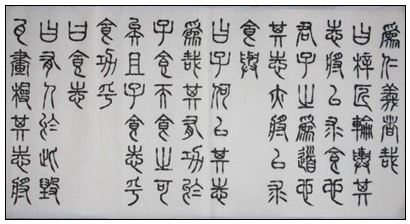 爲仁義者哉
曰梓匠輪輿其
志將以求食也
君子之爲道也
其志亦將以求
食與
曰子何以其志
爲哉其有功於
子食而食之可
矣且子食志乎
食功乎
曰食志
曰有人於此毀
瓦畫墁其志將